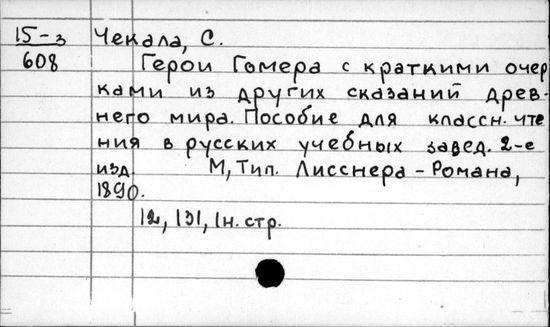 15-3 Чекала, С.
608 Герои Гомера с краткими очер
ками из других сказаний древ-
него мира. Пособие для классн. чте
ния в русских учебных завед. 2-е
изд. М, Тип. Лисснера-Романа,
1890.
12, 131, 1н. стр.